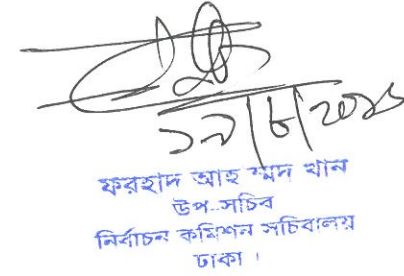 ফরহাদ আহম্মদ খান
উপ-সচিব
নির্বাচন কমিশন সচিবালয়
ঢাকা ।